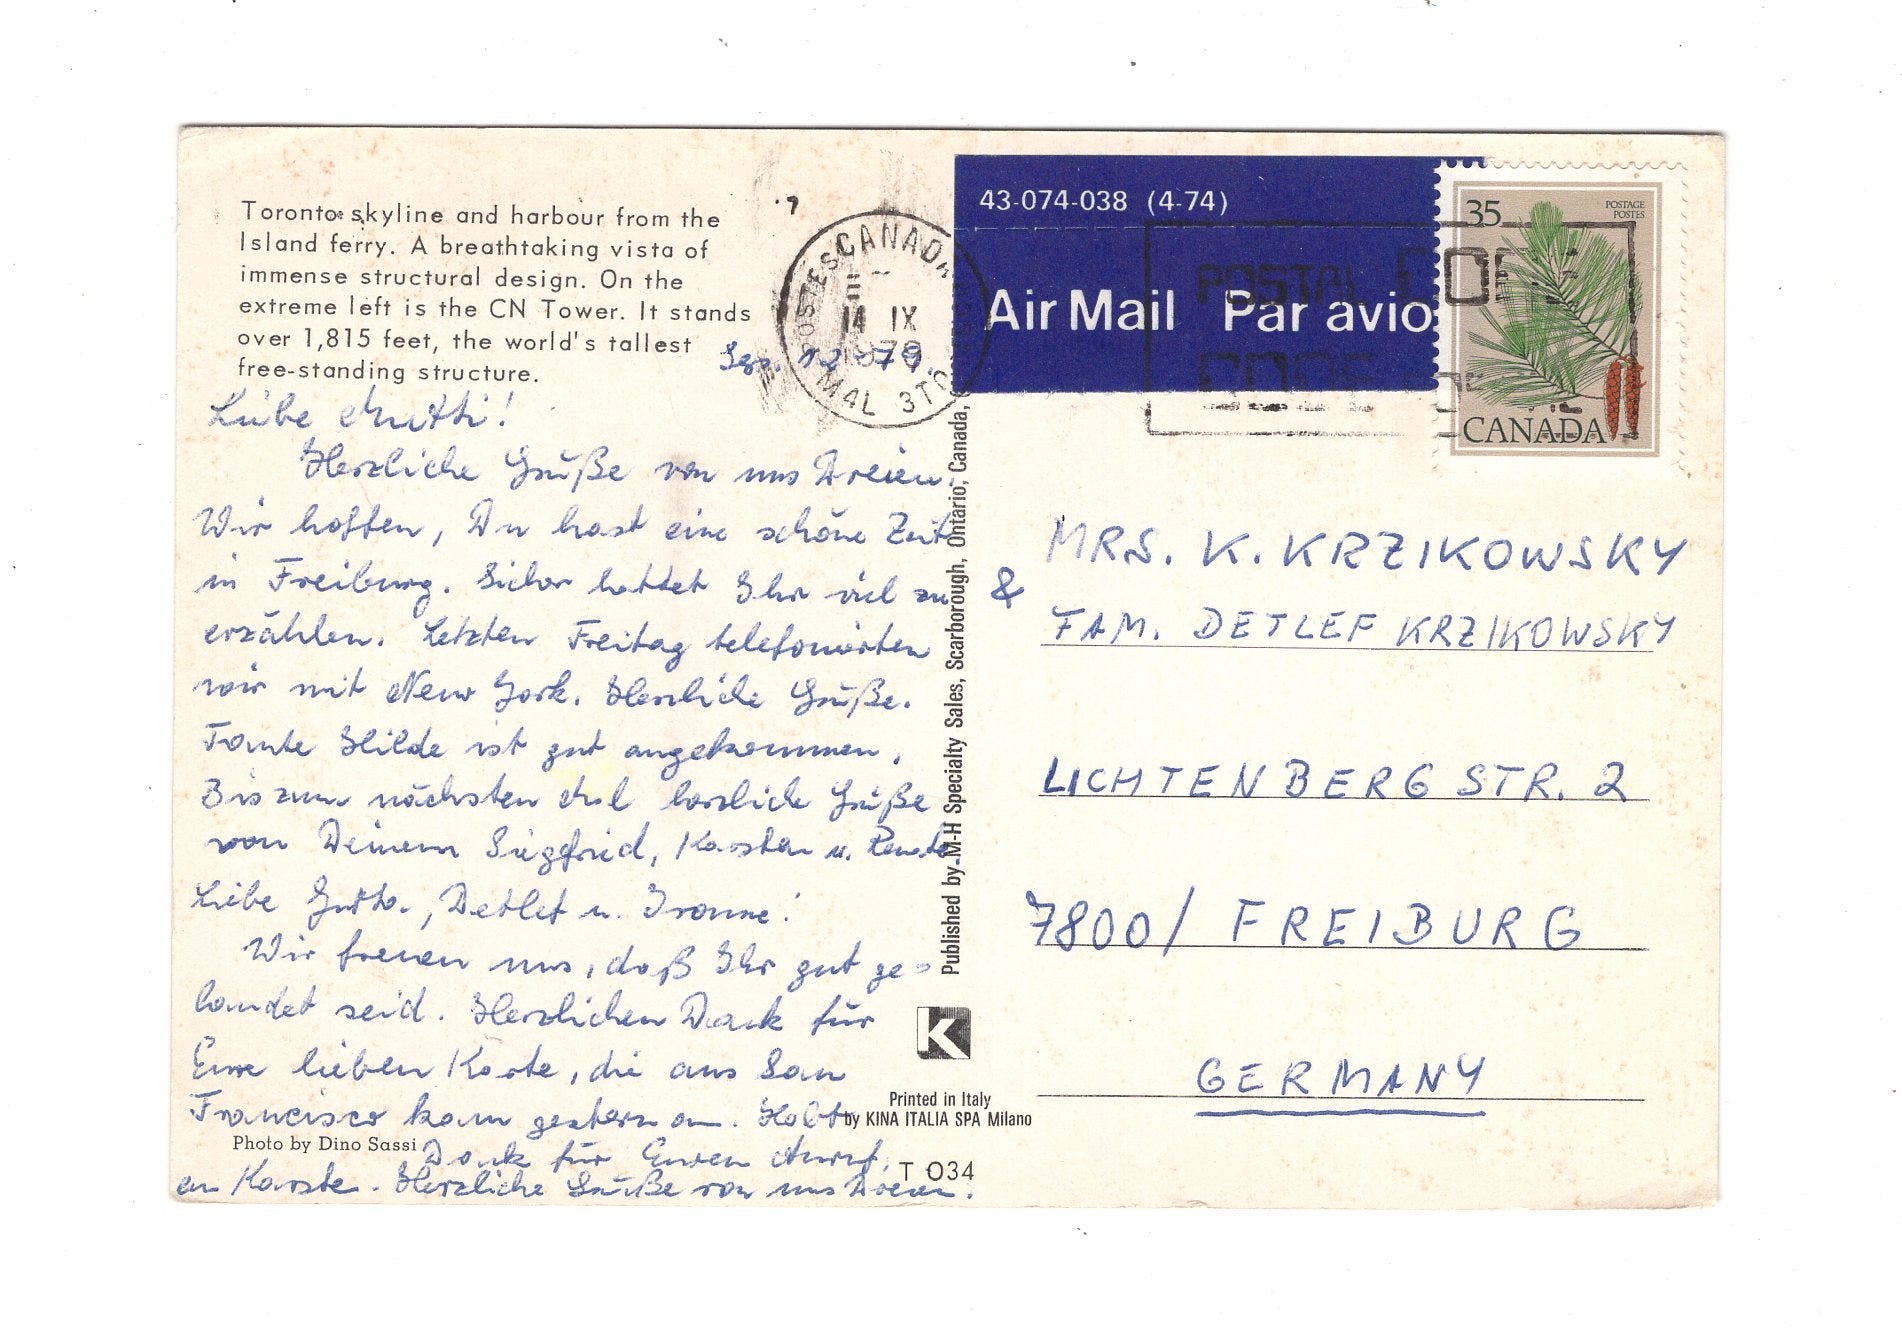 Toronto skyline and harbour from the
Island ferry. A breathtaking vista of
immense structural design. On the
extreme left is the CN Tower. It stands
over 1,815 feet, the world's tallest
free-standing structure.
Sep. 12 79.
Liebe Mutti!
Herzliche Grüße von uns Dreien.
Wir hoffen, Du hast eine schöne Zeit
in Freiburg. Sicher hattet Ihr viel zu
erzählen. Letzten Freitag telefonierten
wir mit New York. Herzliche Grüße.
Tante Hilde ist gut angekommen.
Bis zum nächsten Mal herzliche Grüße
von Deinem Siegfried, Karsten u. Renate
Liebe Jutta, Detlef u. Ivonne!
Wir freuen uns, daß Ihr gut ge=
landet seid. Herzlichen Dank für
Eure lieben Karte, die aus San
Francisco kam gestern an.
Photo by Dino Sassi
Dank für Euren Anruf.
an Karsten. Herzliche Grüße von uns Dreien.
POSTES CANADA
14 IX
1979
M4L 3T0
43-074-038 (4-74)
Air Mail Par avio
POSTAL CODE
35
POSTAGE
POSTES
CANADA
Published by M-H Specialty Sales, Scarborough, Ontario, Canada,
K
Printed in Italy
by KINA ITALIA SPA Milano
T 034
MRS. K. KRZIKOWSKY
& FAM. DETLEF KRZIKOWSKY
LICHTENBERGSTR. 2
7800/ FREIBURG
GERMANY